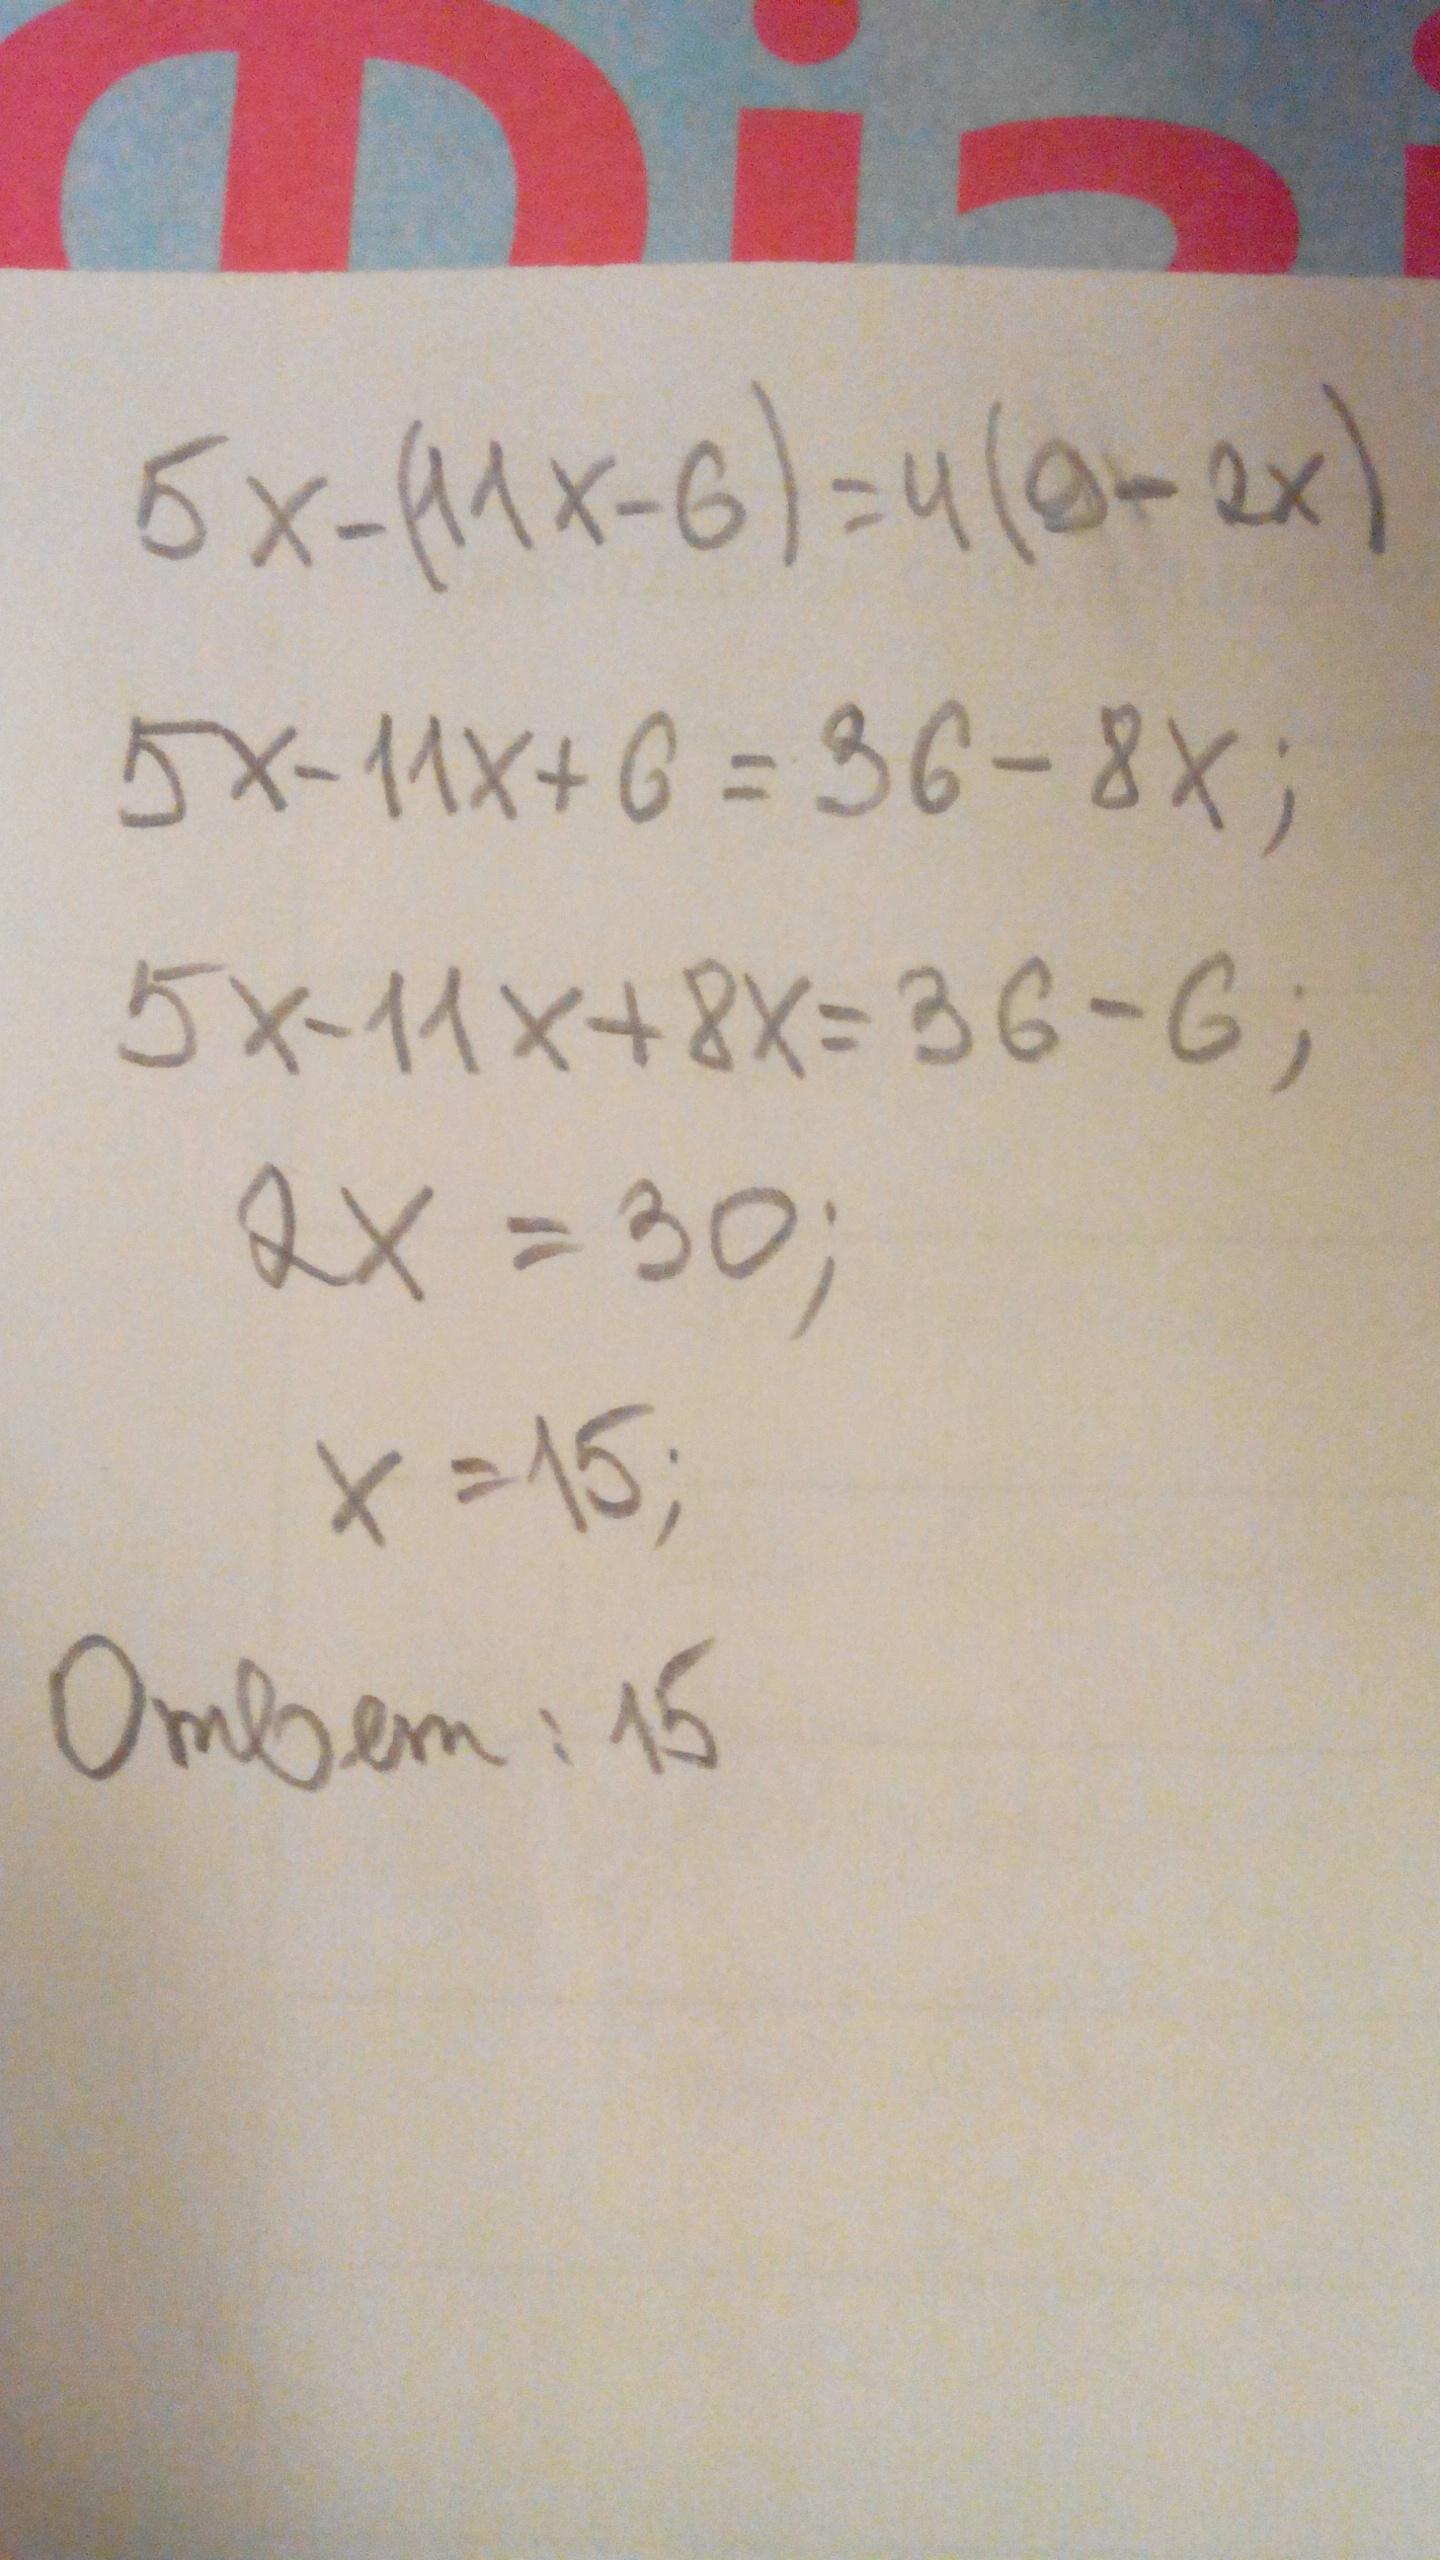 Фізі
5x-(11x-6)=4(9-2x)
5x-11x+6=36-8x;
5x-11x+8x=36-6;
2x=30;
x=15;
Ответ: 15